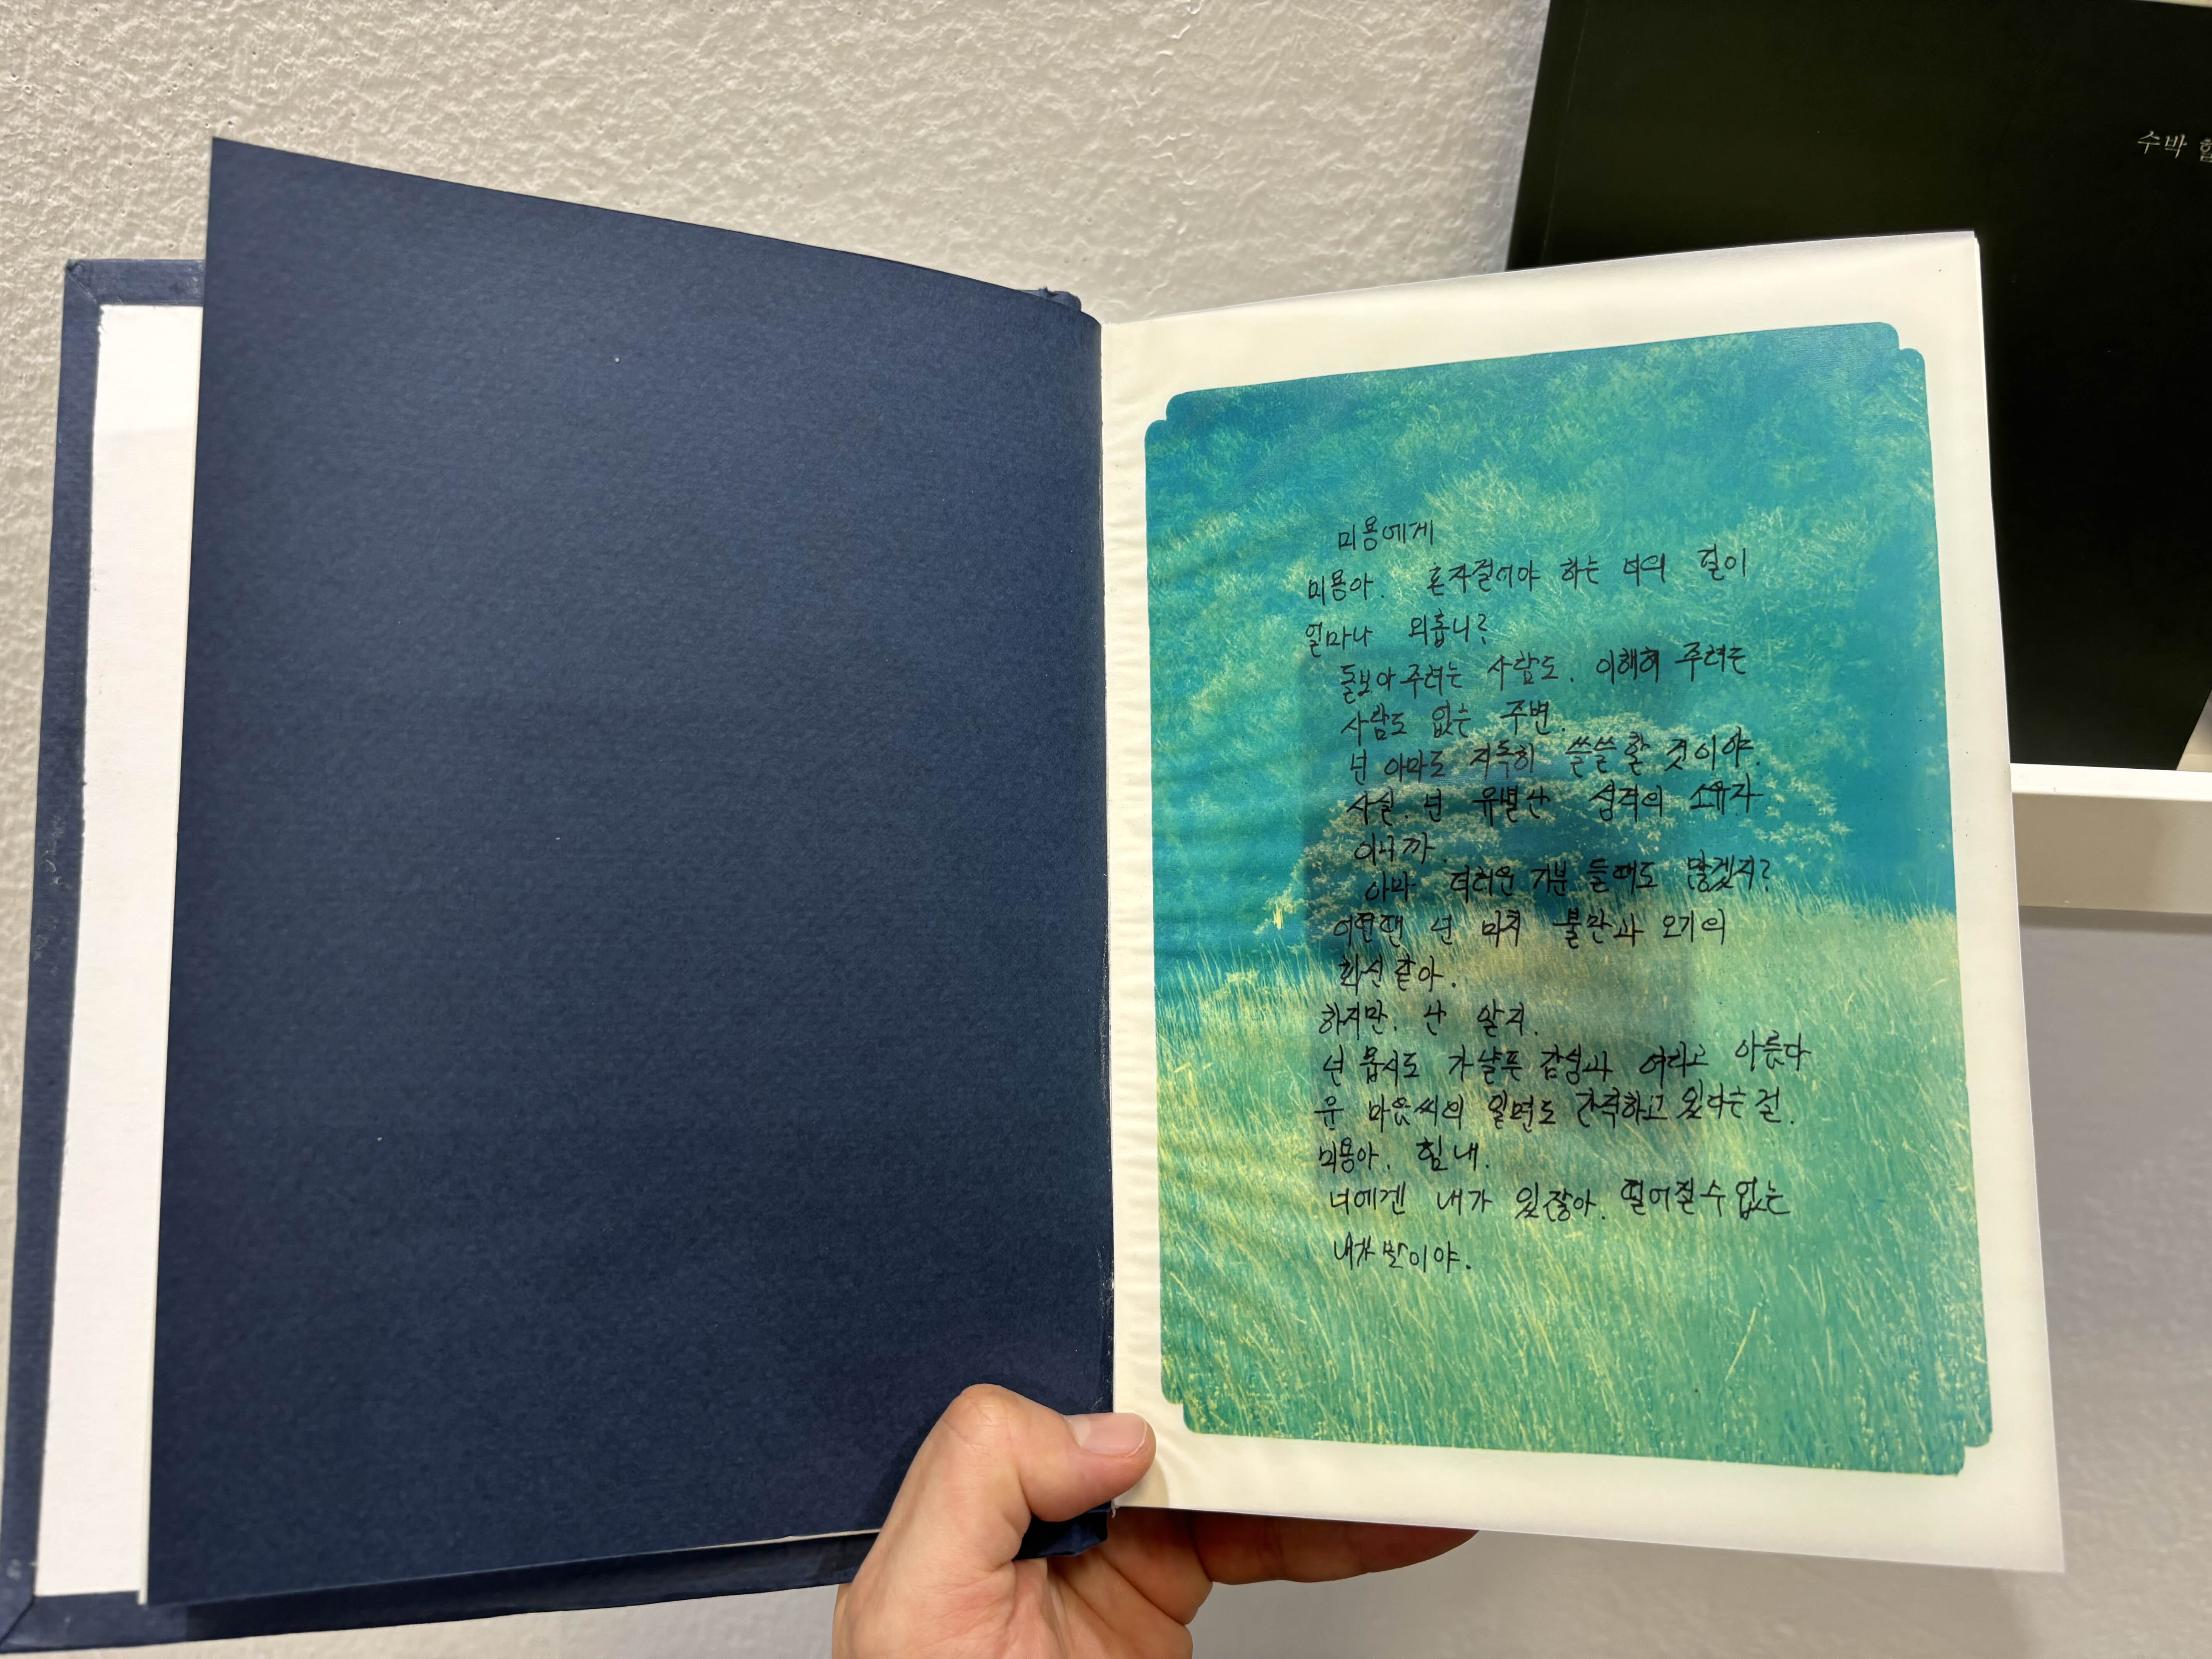 수박
미용에게
미용아. 혼자걸어야 하는 너의 길이
얼마나 외롭니?
돌보아주려는 사람도. 이해해 주려는
사람도 없는 주변.
넌 아마도 지독히 쓸쓸할 것이야.
사실. 넌 유별난 성격의 소유자
이니까.
아마 더러운 기분 들때도 많겠지?
어떤땐 넌 마치 불만과 오기의
화신같아.
하지만. 난 알지.
넌 몹시도 가냘픈 감성과 여리고 아름다
운 마음씨의 일면도 간직하고 있다는걸.
미용아. 힘내.
너에겐 내가 있잖아. 떨어질수없는
내가말이야.